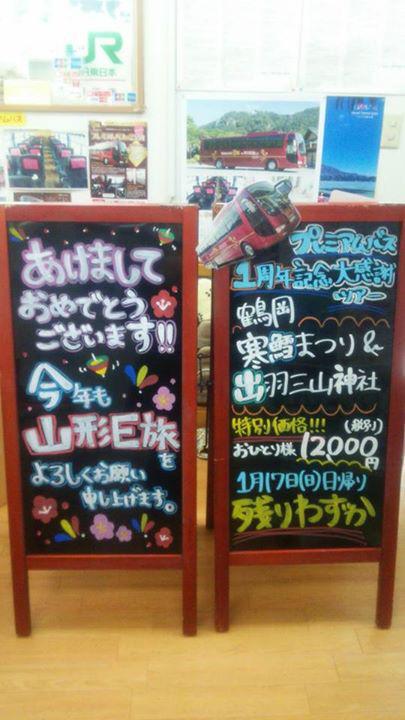 JR
JR東日本
あけまして
おめでとう
ございます!!
今年も
山形E旅を
よろしくお願い
申し上げます。
プレミアムバス
1周年記念大感謝
ツアー
鶴岡
寒鱈まつり&
出羽三山神社
特別価格!!! (税別)
おひとり様 12,000円
1月17日(日)日帰り
残りわずか